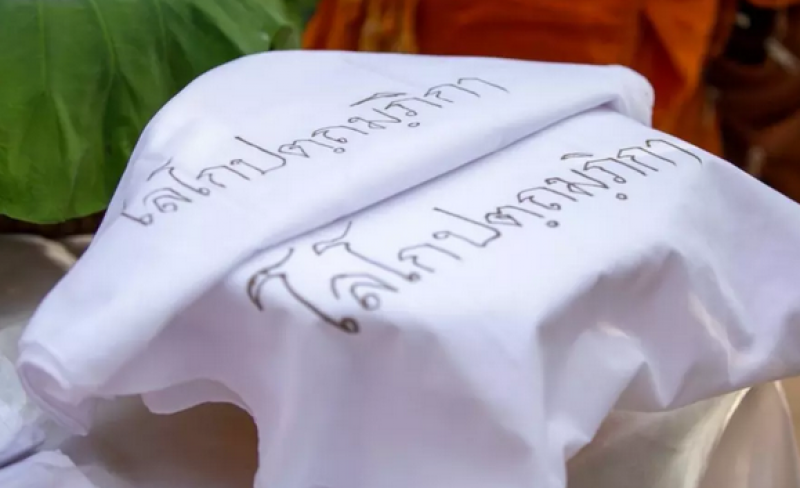 โลโกปตฺถมฺภิกา
โลโกปตฺถมฺภิกา